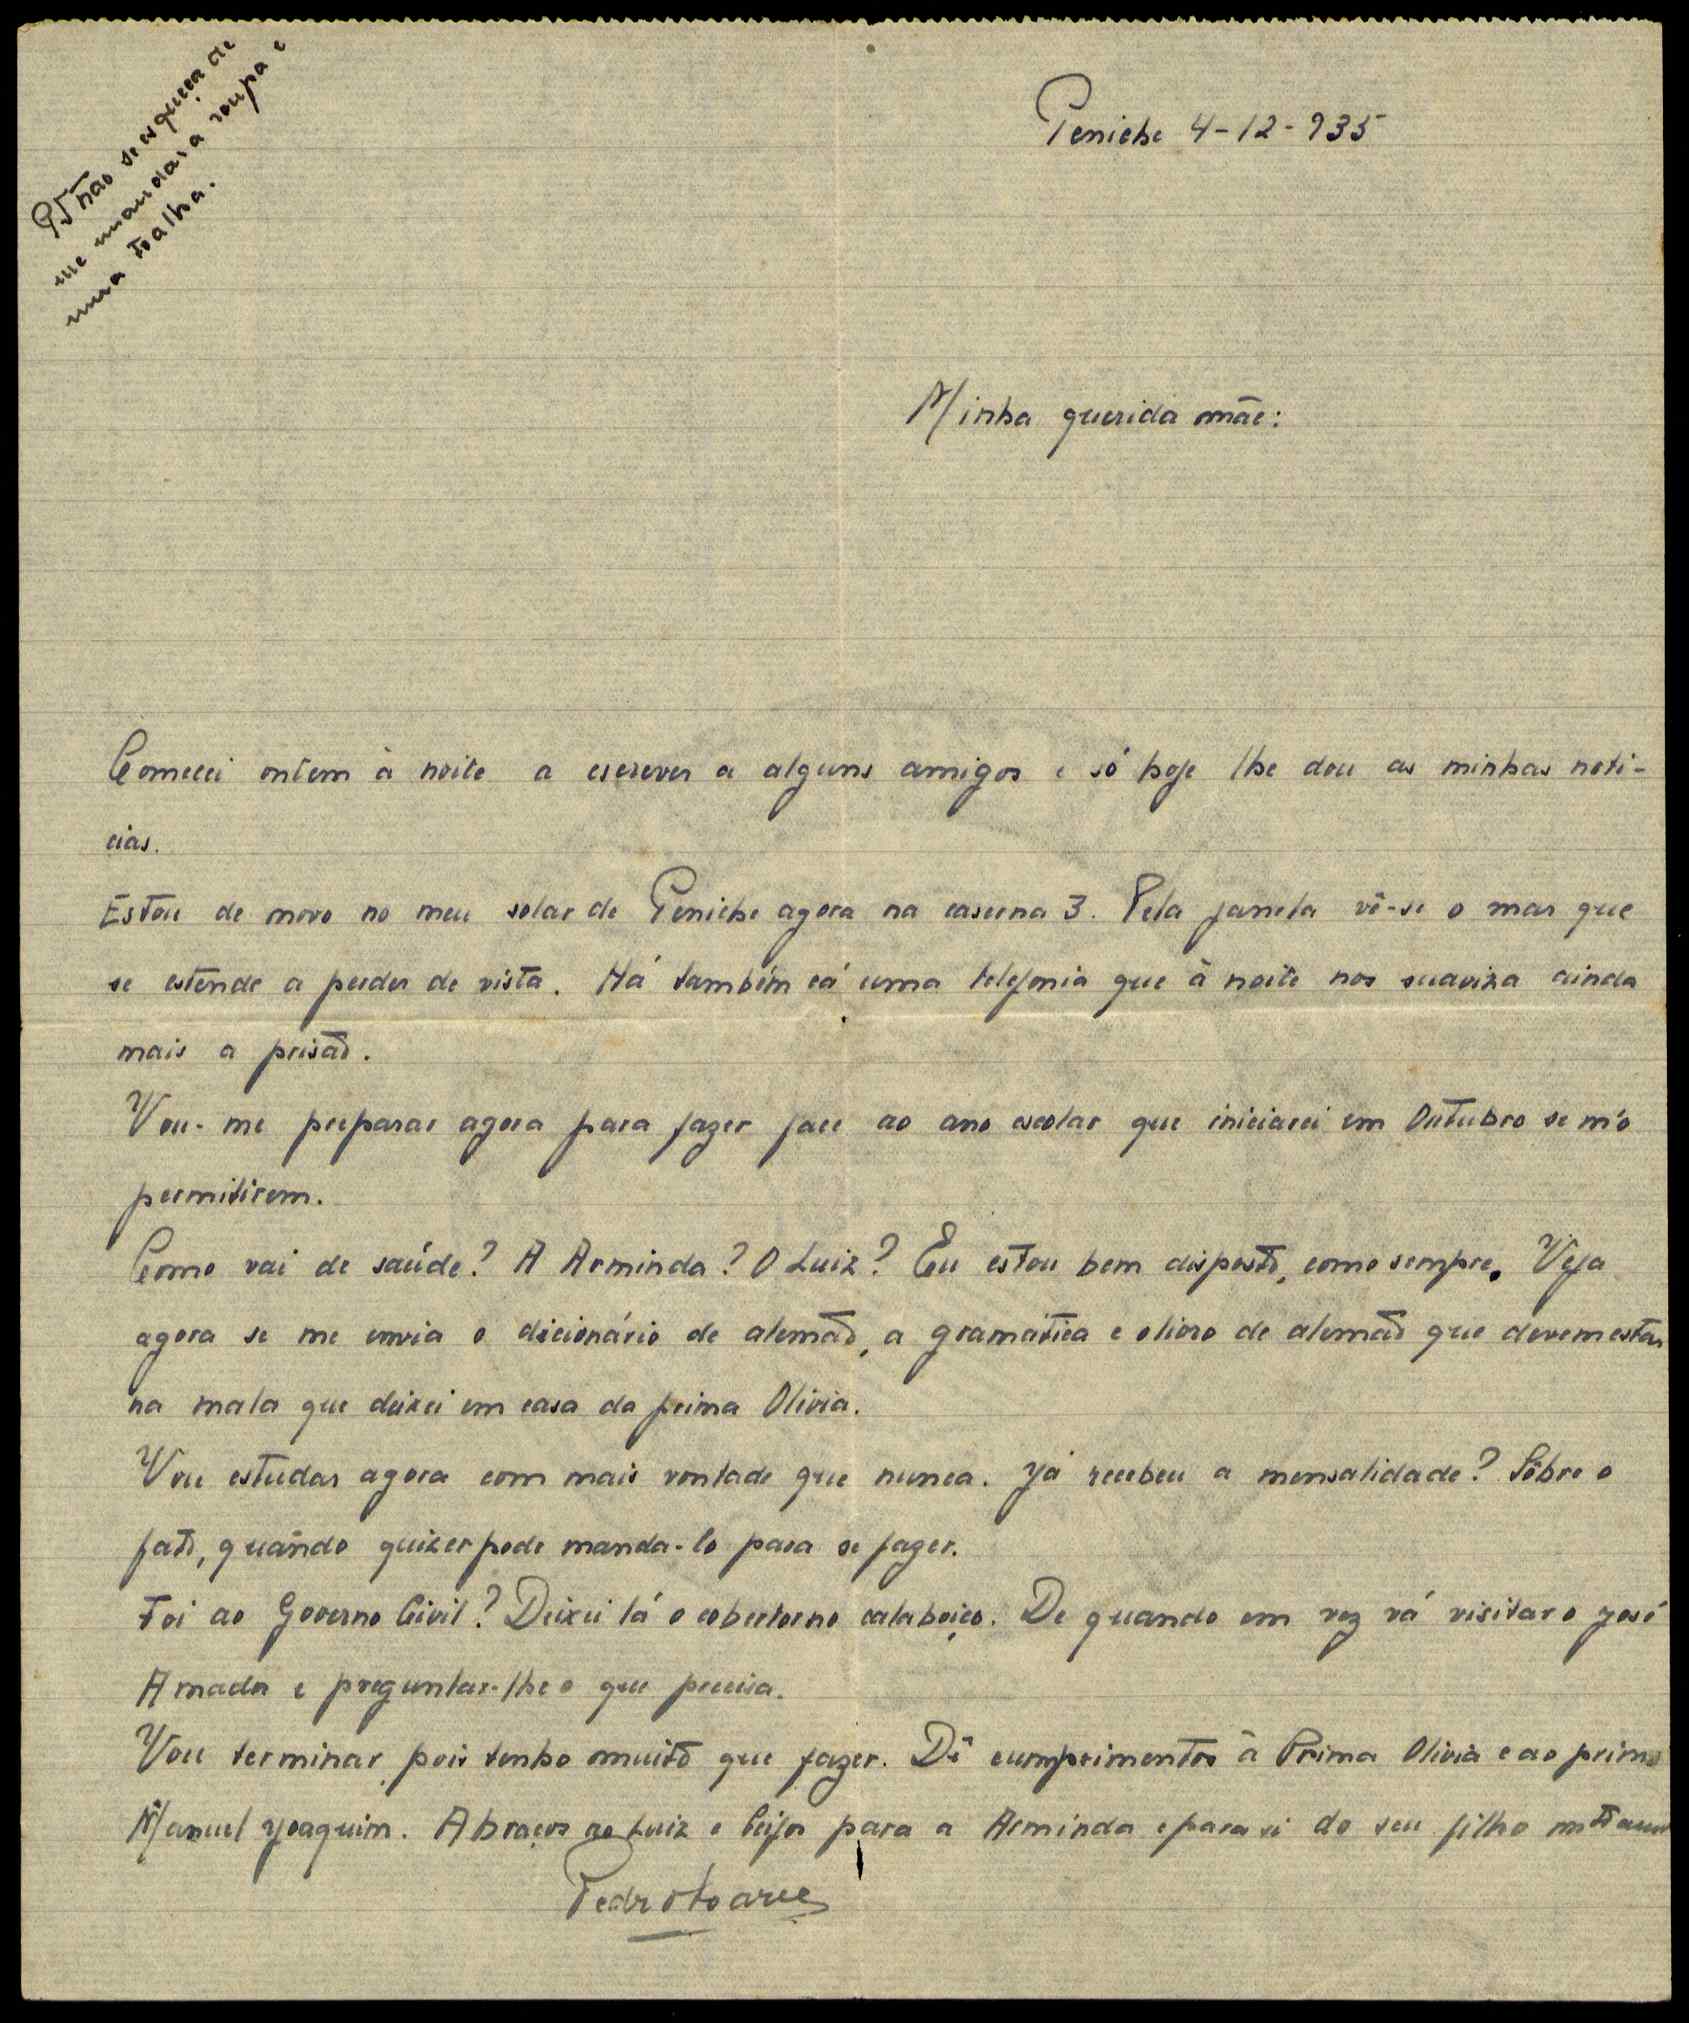 PS Não se esqueça de
me mandar a roupa e
uma toalha.
Peniche 4-12-935
Minha querida mãe:
Comecei ontem à noite a escrever a alguns amigos e só hoje lhe dou as minhas noti-
cias.
Estou de novo no meu solar de Peniche agora na caserna 3. Pela janela vê-se o mar que
se estende a perder de vista. Há também cá uma telefonia que à noite nos suaviza ainda
mais a prisão.
Vou-me preparar agora para fazer face ao ano escolar que iniciarei em Outubro se m'o
permitirem.
Como vai de saúde? A Arminda? O Luiz? Eu estou bem disposto, como sempre. Veja
agora se me envia o dicionário de alemão, a gramática e o livro de alemão que devem estar
na mala que deixei em casa da prima Olivia.
Vou estudar agora com mais vontade que nunca. Já recebeu a mensalidade? Sôbre o
fato, quando quizer pode manda-lo para se fazer.
Foi ao Governo Civil? Deixei lá o cobertor no calaboiço. De quando em vez vá visitar o José
Amador e preguntar-lhe o que precisa.
Vou terminar, pois tenho muito que fazer. Dê cumprimentos à Prima Olivia e ao primo
Manuel Joaquim. Abraços ao Luiz e beijos para a Arminda e para si do seu filho
Pedro Soares